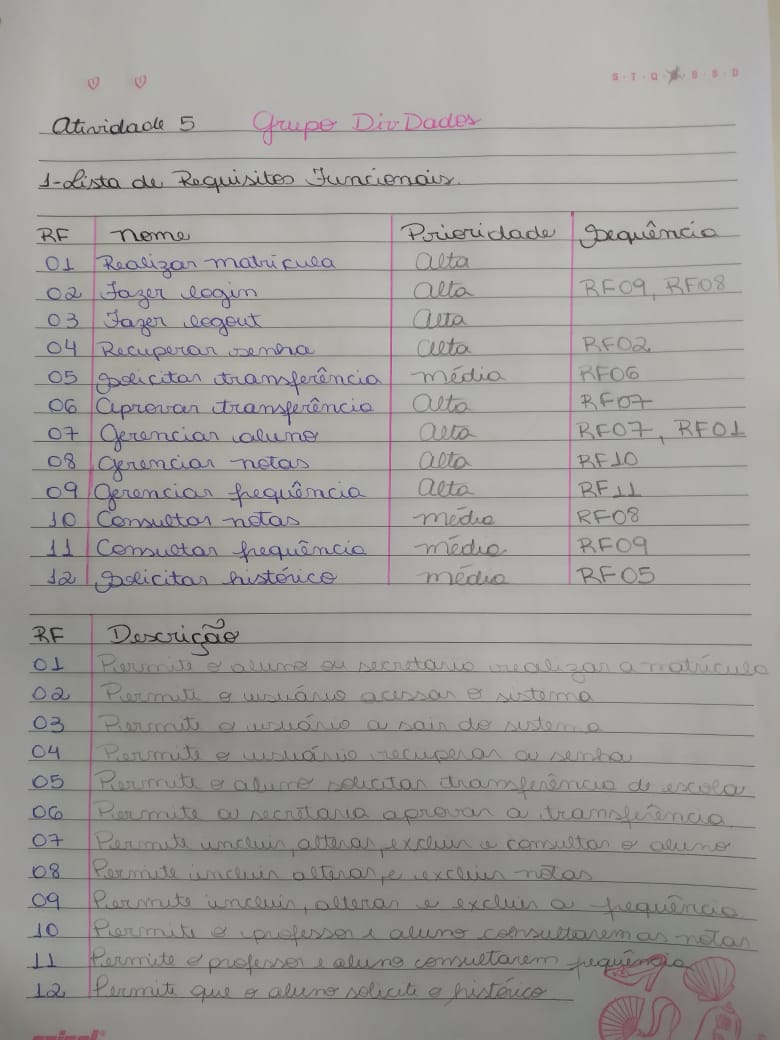 S · T · Q · Q · S · S · D
Atividade 5 Grupo DivDados
1-Lista de Requisitos Funcionais.
RF Nome Prioridade Sequência
01 Realizar matrícula Alta
02 Fazer login Alta RF09, RF08
03 Fazer logout Alta
04 Recuperar senha Alta RF02
05 Solicitar transferência média RF06
06 Aprovar transferência Alta RF07
07 Gerenciar aluno Alta RF07, RF01
08 Gerenciar notas Alta RF10
09 Gerenciar frequência Alta RF11
10 Consultar notas média RF08
11 Consultar frequência média RF09
12 Solicitar histórico média RF05
RF Descrição
01 Permite o aluno ou secretário realizar a matrícula
02 Permite o usuário acessar o sistema
03 Permite o usuário a sair do sistema
04 Permite o usuário recuperar a senha
05 Permite o aluno solicitar transferência de escola
06 Permite a secretaria aprovar a transferência
07 Permite incluir, alterar, excluir e consultar o aluno
08 Permite incluir alterar, e excluir notas
09 Permite incluir, alterar e excluir a frequência
10 Permite o professor e aluno consultarem as notas
11 Permite o professor e aluno consultarem frequência
12 Permite que o aluno solicite o histórico